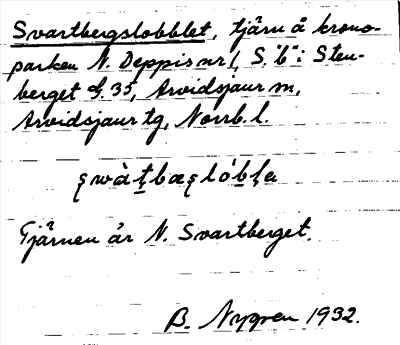 Svartbergslobblet, tjärn å krono-
parken N. Deppis nr 1, S. "b" i Sten-
berget 35, Arvidsjaur sn,
Arvidsjaur tg, Norrb. l.
Tjärnen är N. Svartberget.
B. Nygren 1932.